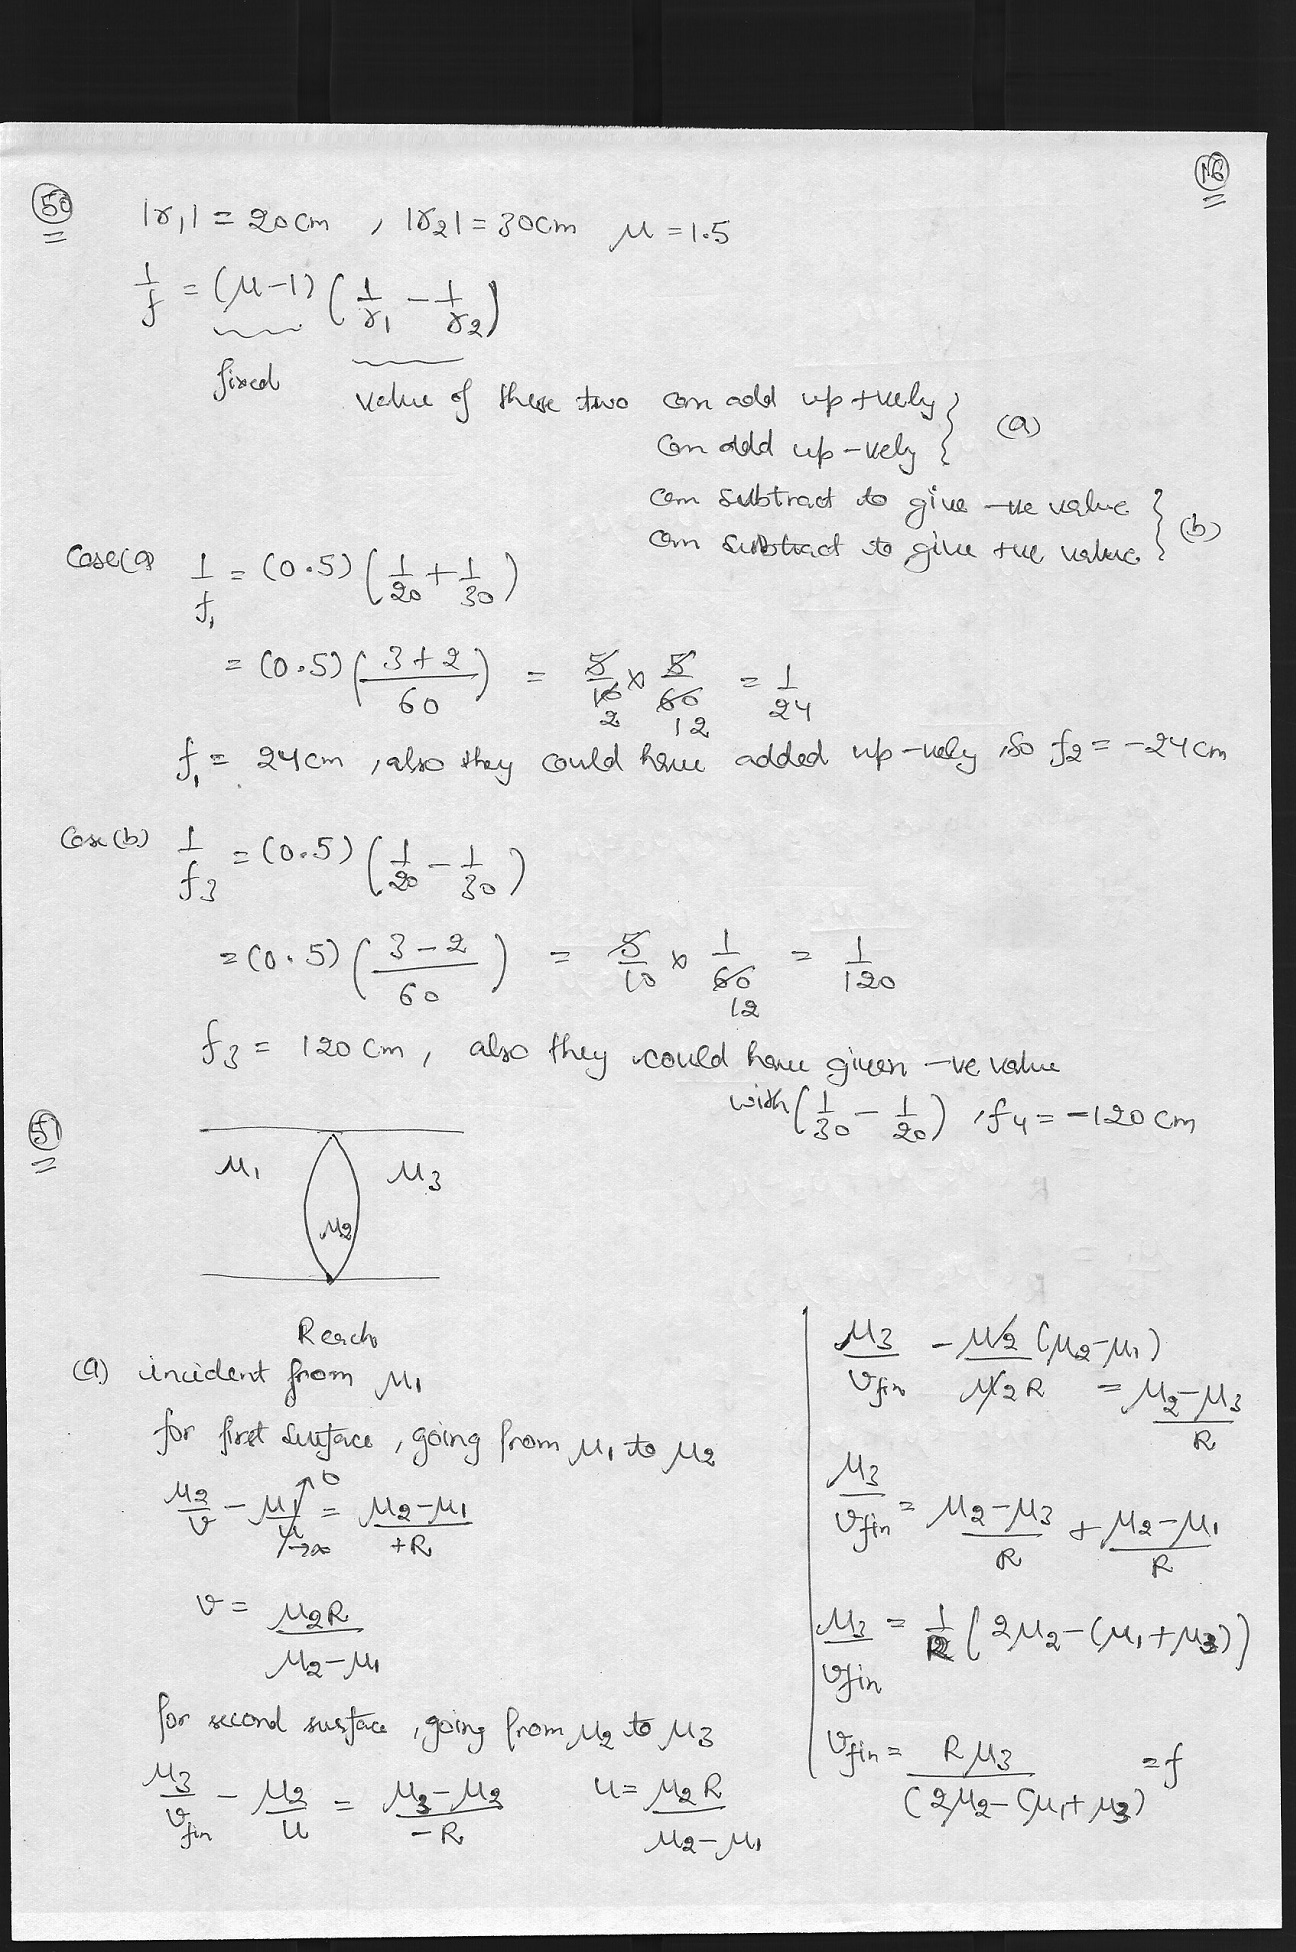 16
50
|r₁| = 20cm , |r₂| = 30cm μ = 1.5
1/f = (μ-1) (1/r₁ - 1/r₂)
fixed value of these two can add up +vely } (a)
can add up -vely
can subtract to give -ve value } (b)
can subtract to give +ve value
Case(a) 1/f₁ = (0.5) (1/20 + 1/30)
= (0.5) ((3+2)/60) = 5/10 × 5/60 = 1/24
2 12
f₁ = 24cm , also they could have added up -vely , so f₂ = -24cm
Case(b) 1/f₃ = (0.5) (1/20 - 1/30)
= (0.5) ((3-2)/60) = 5/10 × 1/60 = 1/120
12
f₃ = 120cm, also they could have given -ve value
with (1/30 - 1/20) , f₄ = -120cm
51
μ₁ μ₂ μ₃
R each
(a) incident from μ₁
for first surface, going from μ₁ to μ₂
μ₂/v - μ₁/u = (μ₂-μ₁)/+R
0
→∞
v = μ₂R/(μ₂-μ₁)
for second surface, going from μ₂ to μ₃
μ₃/v_fin - μ₂/u = (μ₃-μ₂)/-R u = μ₂R/(μ₂-μ₁)
μ₃/v_fin - μ₂(μ₂-μ₁)/μ₂R = (μ₂-μ₃)/R
μ₃/v_fin = (μ₂-μ₃)/R + (μ₂-μ₁)/R
μ₃/v_fin = 1/R (2μ₂-(μ₁+μ₃))
v_fin = Rμ₃/(2μ₂-(μ₁+μ₃) = f